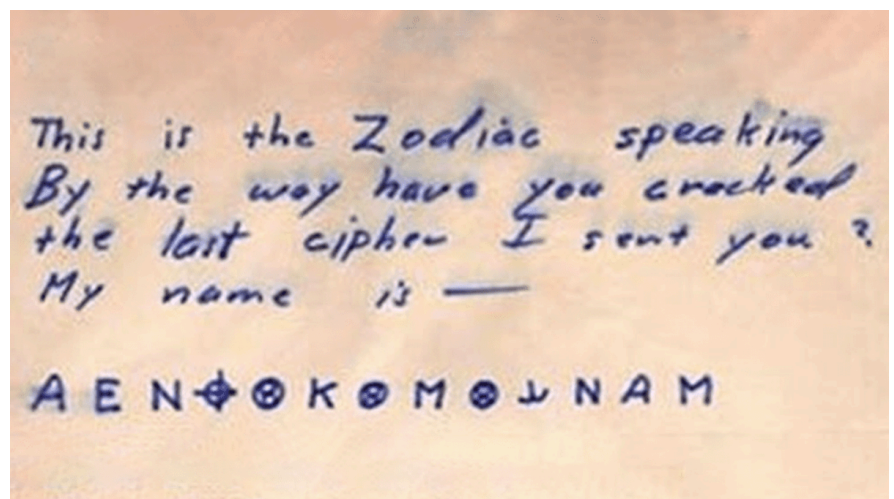 This is the Zodiac speaking
By the way have you cracked
the last cipher I sent you ?
My name is —
A E N ⌖ ⊗ K ⊗ M ⊗ ⅃ N A M